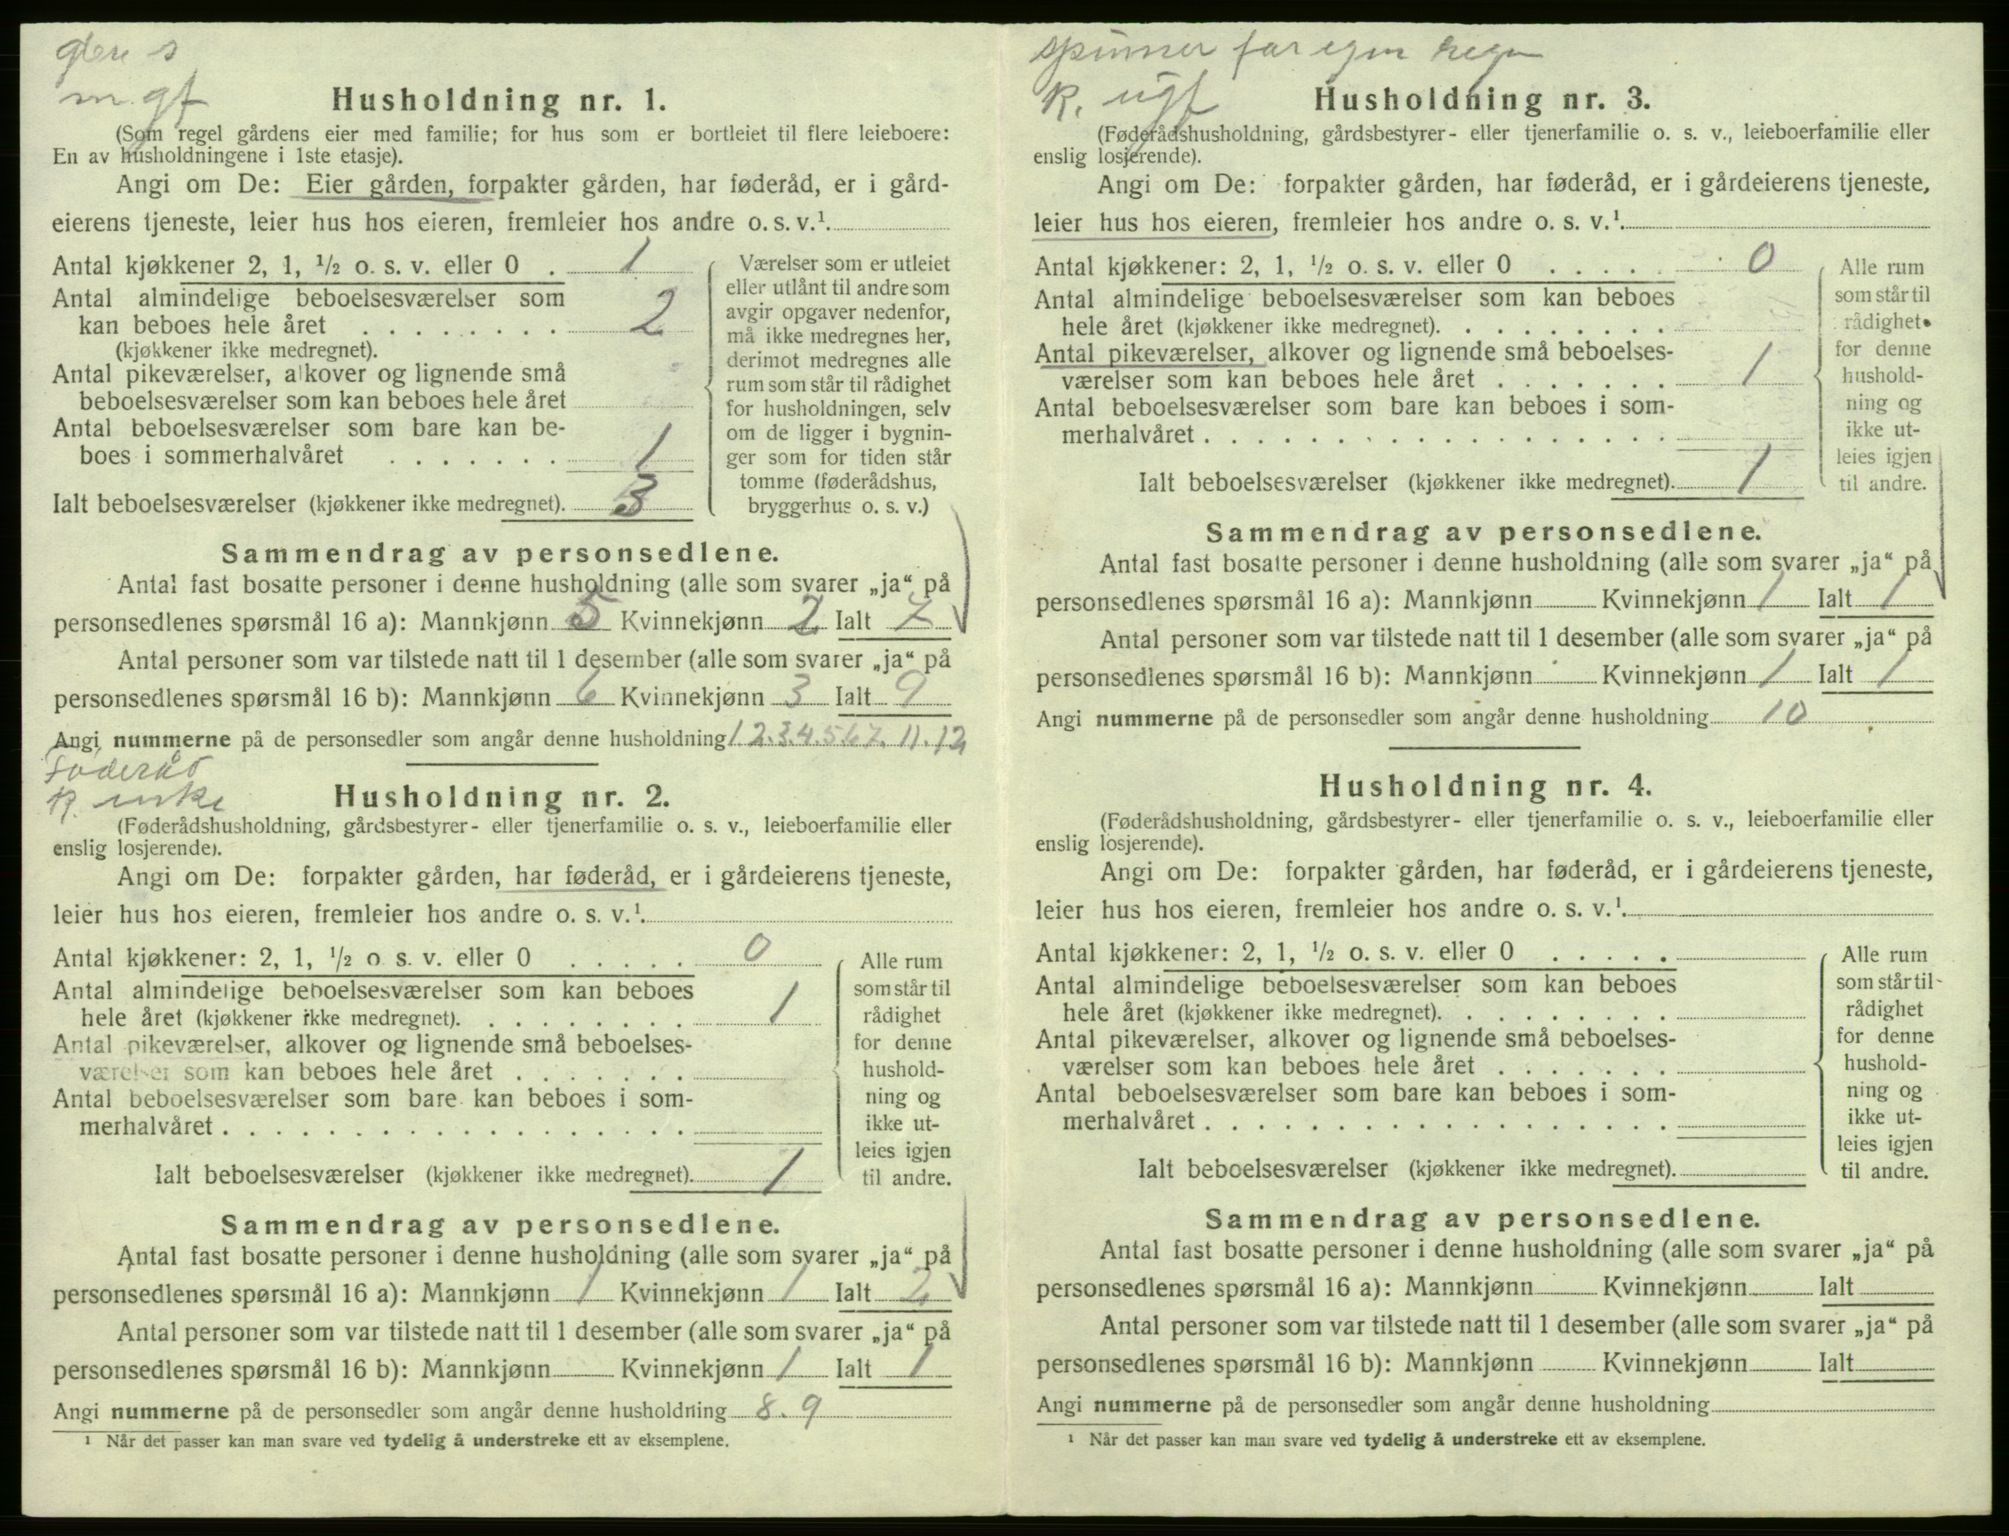 m. gf
Husholdning nr. 1.
(Som regel gårdens eier med familie; for hus som er bortleiet til flere leieboere:
En av husholdningene i 1ste etasje).
Angi om De: Eier gården, forpakter gården, har føderåd, er i gård-
eierens tjeneste, leier hus hos eieren, fremleier hos andre o. s. v.¹
Antal kjøkkener 2, 1, ½ o. s. v. eller 0 . 1
Antal almindelige beboelsesværelser som
kan beboes hele året . . . . . . . . 2
(kjøkkener ikke medregnet).
Antal pikeværelser, alkover og lignende små
beboelsesværelser som kan beboes hele året
Antal beboelsesværelser som bare kan be-
boes i sommerhalvåret . . . . . . . 1
Ialt beboelsesværelser (kjøkkener ikke medregnet). 3
Værelser som er utleiet
eller utlånt til andre som
avgir opgaver nedenfor,
må ikke medregnes her,
derimot medregnes alle
rum som står til rådighet
for husholdningen, selv
om de ligger i bygnin-
ger som for tiden står
tomme (føderådshus,
bryggerhus o. s. v.)
Sammendrag av personsedlene.
Antal fast bosatte personer i denne husholdning (alle som svarer „ja“ på
personsedlenes spørsmål 16 a): Mannkjønn 5 Kvinnekjønn 2 Ialt 7
Antal personer som var tilstede natt til 1 desember (alle som svarer „ja“ på
personsedlenes spørsmål 16 b): Mannkjønn 6 Kvinnekjønn 3 Ialt 9
Angi nummerne på de personsedler som angår denne husholdning 1 2.3.4.5.6.7. 11. 12
Føderåd
K. enke
Husholdning nr. 2.
(Føderådshusholdning, gårdsbestyrer- eller tjenerfamilie o. s. v., leieboerfamilie eller
enslig losjerende).
Angi om De: forpakter gården, har føderåd, er i gårdeierens tjeneste,
leier hus hos eieren, fremleier hos andre o. s. v.¹
Antal kjøkkener: 2, 1, ½ o. s. v. eller 0 . . . . . 0
Antal almindelige beboelsesværelser som kan beboes
hele året (kjøkkener ikke medregnet). . . . . . . . . 1
Antal pikeværelser, alkover og lignende små beboelses-
værelser som kan beboes hele året . . . . . . .
Antal beboelsesværelser som bare kan beboes i som-
merhalvåret . . . . . . . . . . . . . . . . . .
Ialt beboelsesværelser (kjøkkener ikke medregnet). 1
Alle rum
som står til
rådighet
for denne
hushold-
ning og
ikke ut-
leies igjen
til andre.
Sammendrag av personsedlene.
Antal fast bosatte personer i denne husholdning (alle som svarer „ja“ på
personsedlenes spørsmål 16 a): Mannkjønn 1 Kvinnekjønn 1 Ialt 2
Antal personer som var tilstede natt til 1 desember (alle som svarer „ja“ på
personsedlenes spørsmål 16 b): Mannkjønn Kvinnekjønn 1 Ialt 1
Angi nummerne på de personsedler som angår denne husholdning 8. 9
¹ Når det passer kan man svare ved tydelig å understreke ett av eksemplene.
spinner for egen regn
K. ugf
Husholdning nr. 3.
(Føderådshusholdning, gårdsbestyrer- eller tjenerfamilie o. s. v., leieboerfamilie eller
enslig losjerende).
Angi om De: forpakter gården, har føderåd, er i gårdeierens tjeneste,
leier hus hos eieren, fremleier hos andre o. s. v.¹
Antal kjøkkener: 2, 1, ½ o. s. v. eller 0 . . . . . 0
Antal almindelige beboelsesværelser som kan beboes
hele året (kjøkkener ikke medregnet). . . . . . . . .
Antal pikeværelser, alkover og lignende små beboelses-
værelser som kan beboes hele året . . . . . . . 1
Antal beboelsesværelser som bare kan beboes i som-
merhalvåret . . . . . . . . . . . . . . . . . .
Ialt beboelsesværelser (kjøkkener ikke medregnet). 1
Alle rum
som står til
rådighet
for denne
hushold-
ning og
ikke ut-
leies igjen
til andre.
Sammendrag av personsedlene.
Antal fast bosatte personer i denne husholdning (alle som svarer „ja“ på
personsedlenes spørsmål 16 a): Mannkjønn Kvinnekjønn 1 Ialt 1
Antal personer som var tilstede natt til 1 desember (alle som svarer „ja“ på
personsedlenes spørsmål 16 b): Mannkjønn Kvinnekjønn 1 Ialt 1
Angi nummerne på de personsedler som angår denne husholdning 10
Husholdning nr. 4.
(Føderådshusholdning, gårdsbestyrer- eller tjenerfamilie o. s. v., leieboerfamilie eller
enslig losjerende).
Angi om De: forpakter gården, har føderåd, er i gårdeierens tjeneste,
leier hus hos eieren, fremleier hos andre o. s. v.¹
Antal kjøkkener: 2, 1, ½ o. s. v. eller 0 . . . . .
Antal almindelige beboelsesværelser som kan beboes
hele året (kjøkkener ikke medregnet). . . . . . . . .
Antal pikeværelser, alkover og lignende små beboelses-
værelser som kan beboes hele året . . . . . . .
Antal beboelsesværelser som bare kan beboes i som-
merhalvåret . . . . . . . . . . . . . . . . . .
Ialt beboelsesværelser (kjøkkener ikke medregnet).
Alle rum
som står til
rådighet
for denne
hushold-
ning og
ikke ut-
leies igjen
til andre.
Sammendrag av personsedlene.
Antal fast bosatte personer i denne husholdning (alle som svarer „ja“ på
personsedlenes spørsmål 16 a): Mannkjønn Kvinnekjønn Ialt
Antal personer som var tilstede natt til 1 desember (alle som svarer „ja“ på
personsedlenes spørsmål 16 b): Mannkjønn Kvinnekjønn Ialt
Angi nummerne på de personsedler som angår denne husholdning
¹ Når det passer kan man svare ved tydelig å understreke ett av eksemplene.